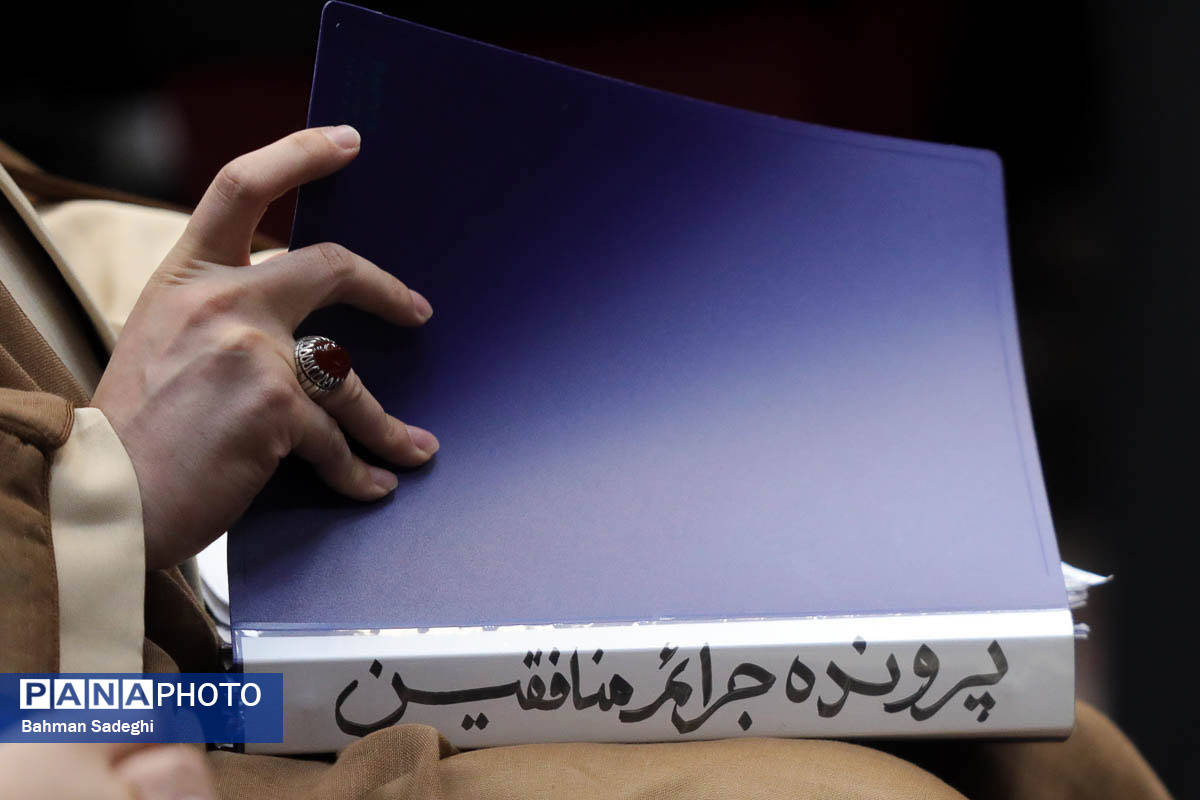 پرونده جرائم منافقین
PANAPHOTO
Bahman Sadeghi